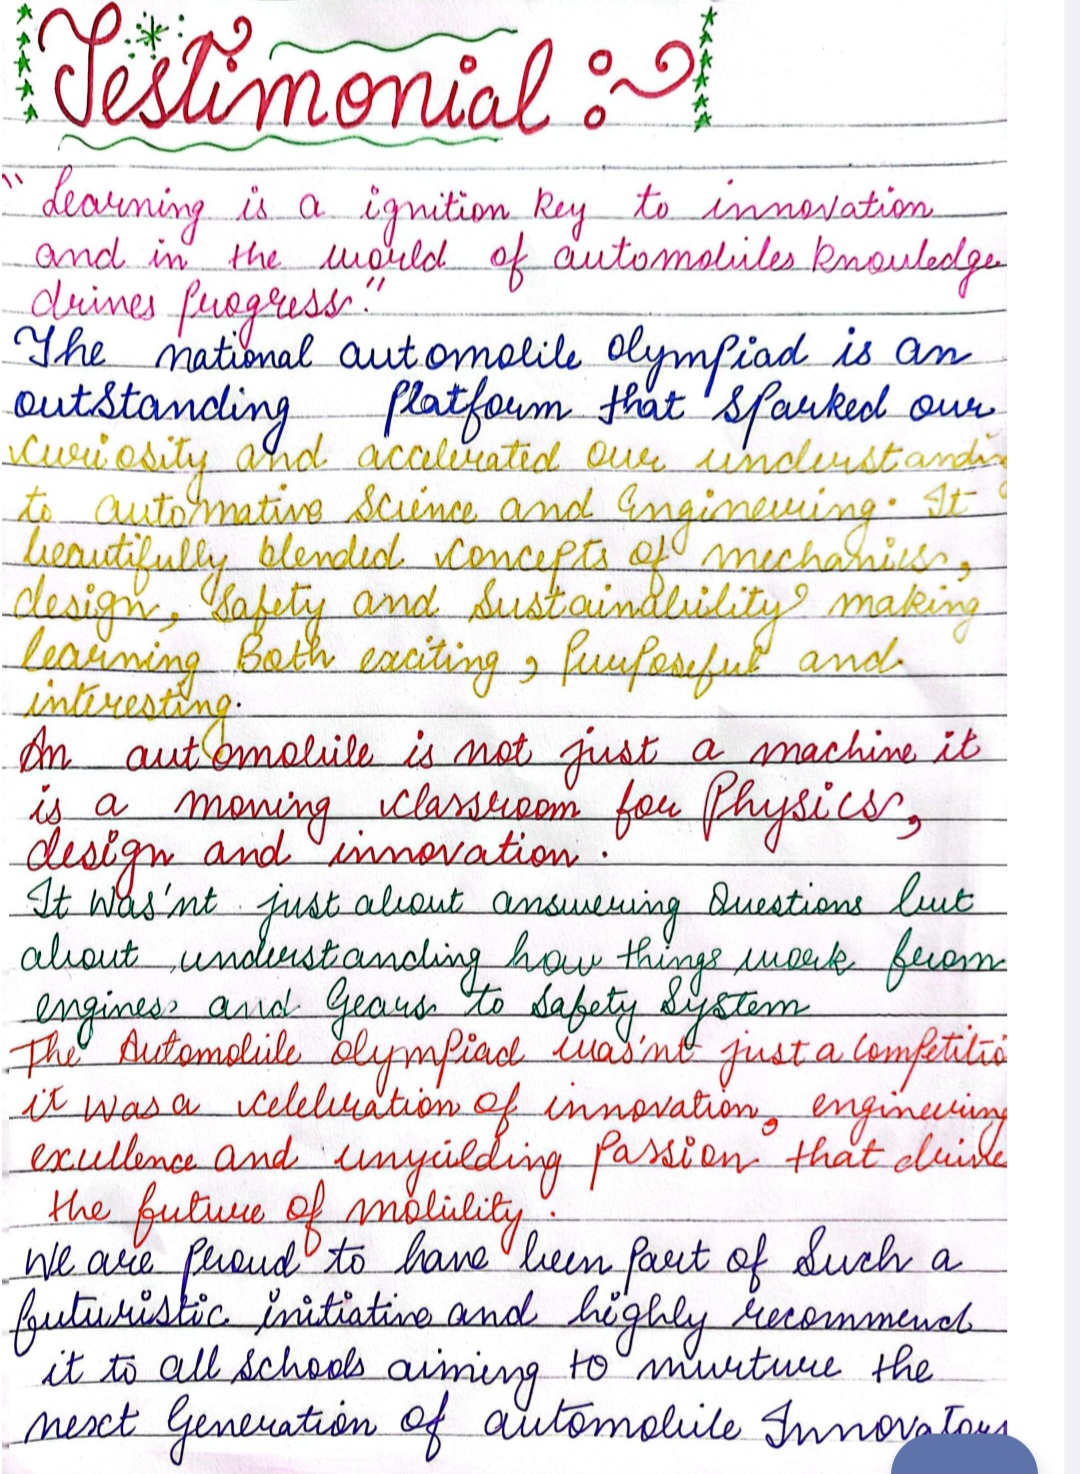 Testimonial :
"Learning is a ignition key to innovation
and in the world of automobiles knowledge
drives progress."
The national automobile olympiad is an
outstanding platform that sparked our
curiosity and accelerated our understanding
to automative Science and Engineering. It
beautifully blended concepts of mechanics,
design, Safety and Sustainability making
learning Both exciting, purposeful and
interesting.
An automobile is not just a machine it
is a moving classroom for Physics,
design and innovation.
It was'nt just about answering Questions but
about understanding how things work from
engines and Gears to Safety System
The Automobile olympiad was'nt just a Competitio
it was a celebration of innovation, engineering
excellence and unyielding Passion that drive
the future of mobility.
We are proud to have been part of Such a
futuristic initiative and highly recommend
it to all Schools aiming to nurture the
next Generation of automobile Innovators